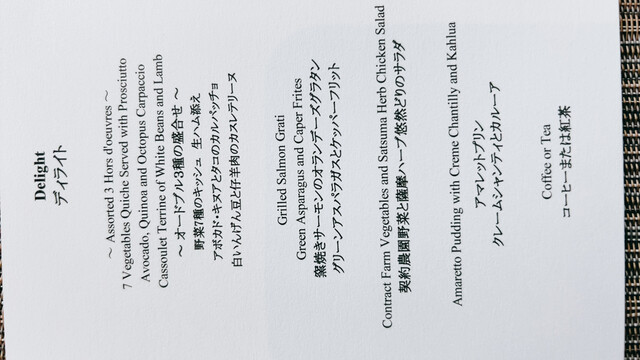 Delight
ディライト
～ Assorted 3 Hors d'oeuvres ～
7 Vegetables Quiche Served with Prosciutto
Avocado, Quinoa and Octopus Carpaccio
Cassoulet Terrine of White Beans and Lamb
～ オードブル3種の盛合せ ～
野菜7種のキッシュ 生ハム添え
アボカド・キヌアとタコのカルパッチョ
白いんげん豆と仔羊肉のカスレテリーヌ
Grilled Salmon Grati
Green Asparagus and Caper Frites
窯焼きサーモンのオランデーズグラタン
グリーンアスパラガスとケッパーフリット
Contract Farm Vegetables and Satsuma Herb Chicken Salad
契約農園野菜と薩摩ハーブ悠然どりのサラダ
Amaretto Pudding with Creme Chantilly and Kahlua
アマレットプリン
クレームシャンティとカルーア
Coffee or Tea
コーヒーまたは紅茶